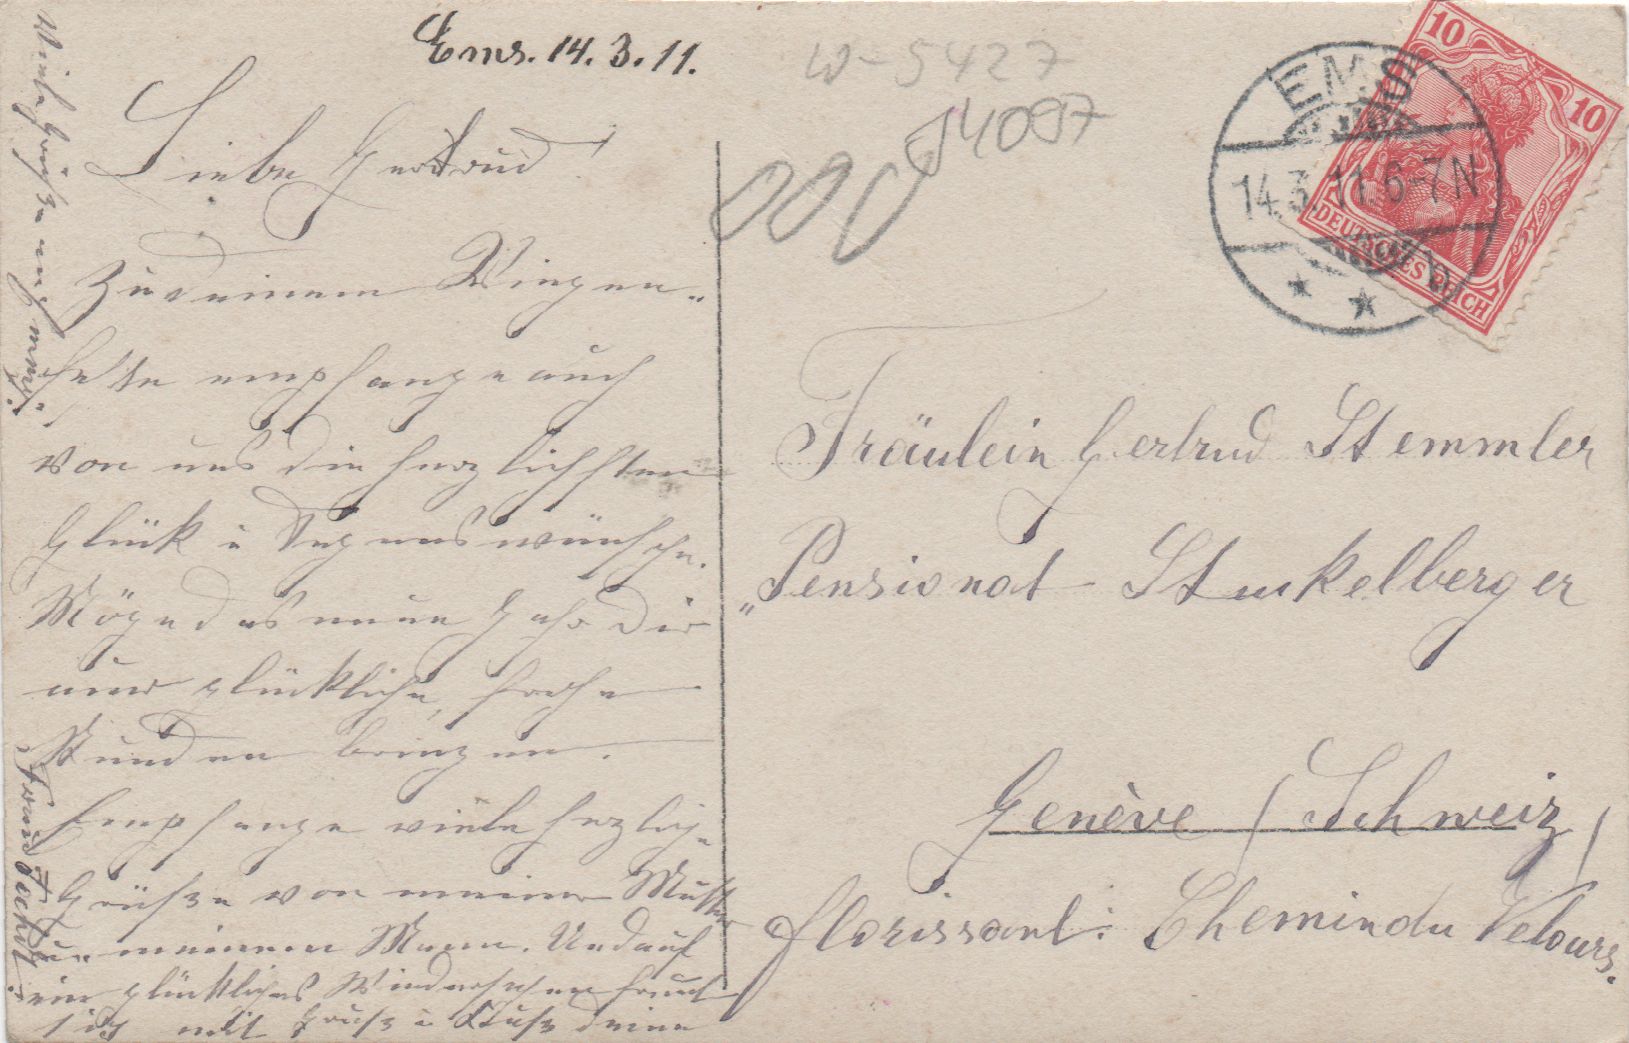 Ems. 14. 3. 11.
W-5427
14097
Liebe Gertrud!
Zu Deinem Wiegen-
feste empfange auch
von uns die herzlichsten
Glück u Segenswünsche.
Möge das neue Jahr Dir
nur glückliche, frohe
Stunden bringen.
Empfange viele herzliche
Grüße von meiner Mutter
u. meinem Mann. Und auf
ein glückliches Wiedersehen freut
sich mit Gruß u Kuß Deine
Viele Grüße auch
EMS
14.3.11.6-7N
10
10
DEUTSCHES REICH
Fräulein Gertrud Stemmler
Pensionat Stukelberger
Genève (Schweiz)
Florissant: Chemin du Velours.